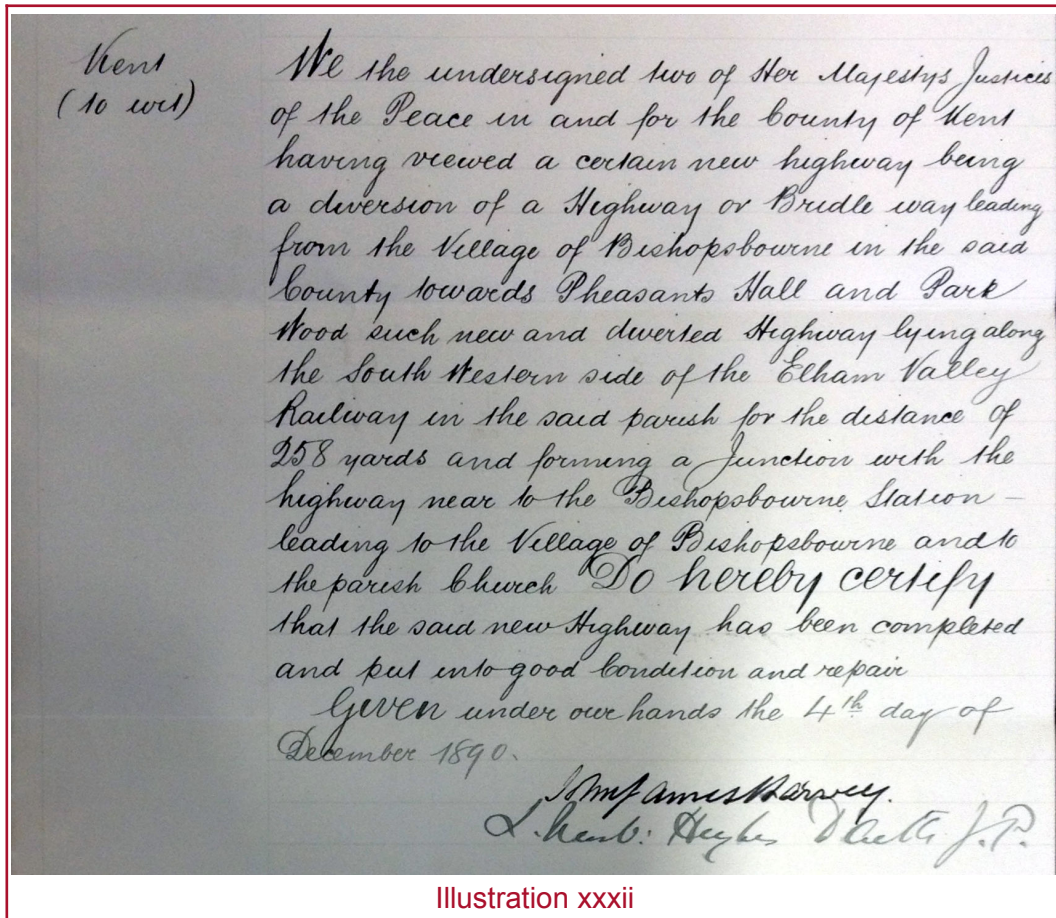 Kent
(to wit)
We the undersigned two of Her Majestys Justices
of the Peace in and for the County of Kent
having viewed a certain new highway being
a diversion of a Highway or Bridle way leading
from the Village of Bishopsbourne in the said
County towards Pheasants Hall and Park
Wood such new and diverted Highway lying along
the South Western side of the Elham Valley
Railway in the said parish for the distance of
258 yards and forming a Junction with the
highway near to the Bishopsbourne Station –
leading to the Village of Bishopsbourne and to
the parish Church Do hereby certify
that the said new Highway has been completed
and put into good Condition and repair
Given under our hands the 4th day of
December 1890.
James Harvey.
Hughes J.P.
Illustration xxxii